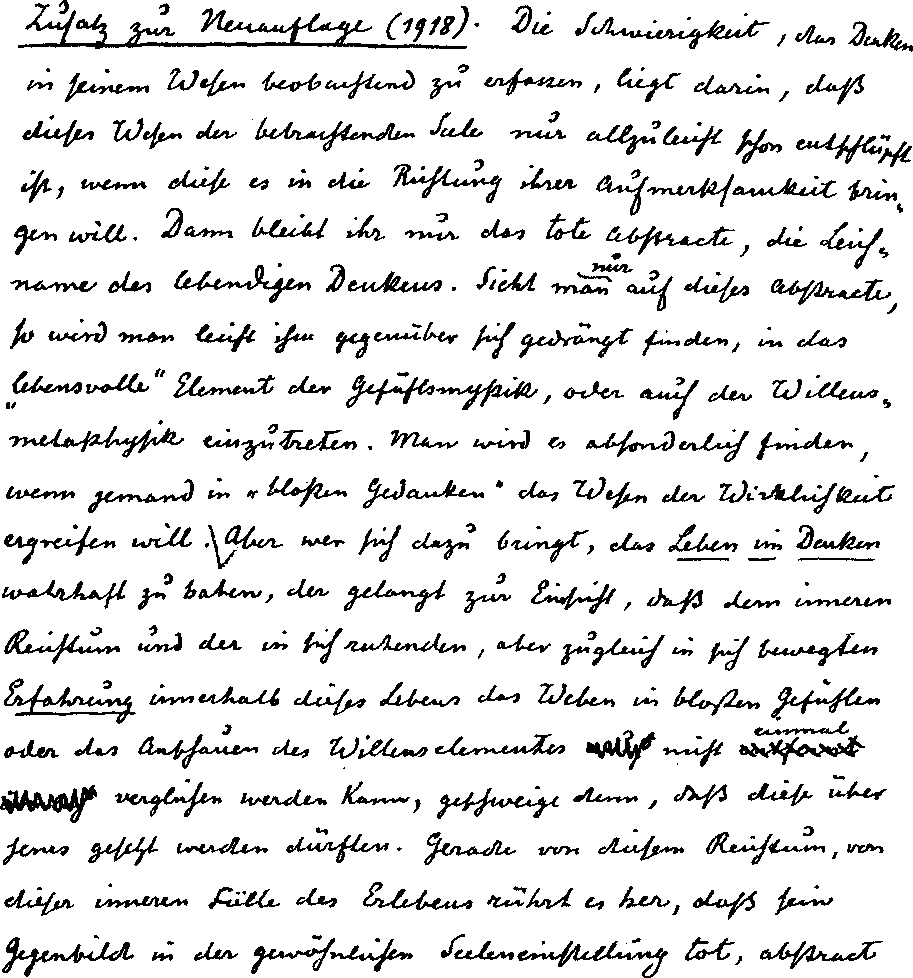 Zusatz zur Neuauflage (1918). Die Schwierigkeit, das Denken
in seinem Wesen beobachtend zu erfassen, liegt darin, daß
dieses Wesen der betrachtenden Seele nur allzuleicht schon entschlüpft
ist, wenn diese es in die Richtung ihrer Aufmerksamkeit brin-
gen will. Dann bleibt ihr nur das tote Abstracte, die Leich-
name des lebendigen Denkens. Sieht man nur auf dieses Abstracte,
so wird man leicht ihm gegenüber sich gedrängt finden, in das
„lebensvolle“ Element der Gefühlsmystik, oder auch der Willens-
metaphysik einzutreten. Man wird es absonderlich finden,
wenn jemand in „bloßen Gedanken“ das Wesen der Wirklichkeit
ergreifen will. Aber wer sich dazu bringt, das Leben im Denken
wahrhaft zu haben, der gelangt zur Einsicht, daß dem inneren
Reichtum und der in sich ruhenden, aber zugleich in sich bewegten
Erfahrung innerhalb dieses Lebens das Weben in bloßen Gefühlen
oder das Anschauen des Willenselementes nicht einmal
verglichen werden kann, geschweige denn, daß diese über
jenes gesetzt werden dürften. Gerade von diesem Reichtum, von
dieser inneren Fülle des Erlebens rührt es her, daß sein
Gegenbild in der gewöhnlichen Seeleneinstellung tot, abstract